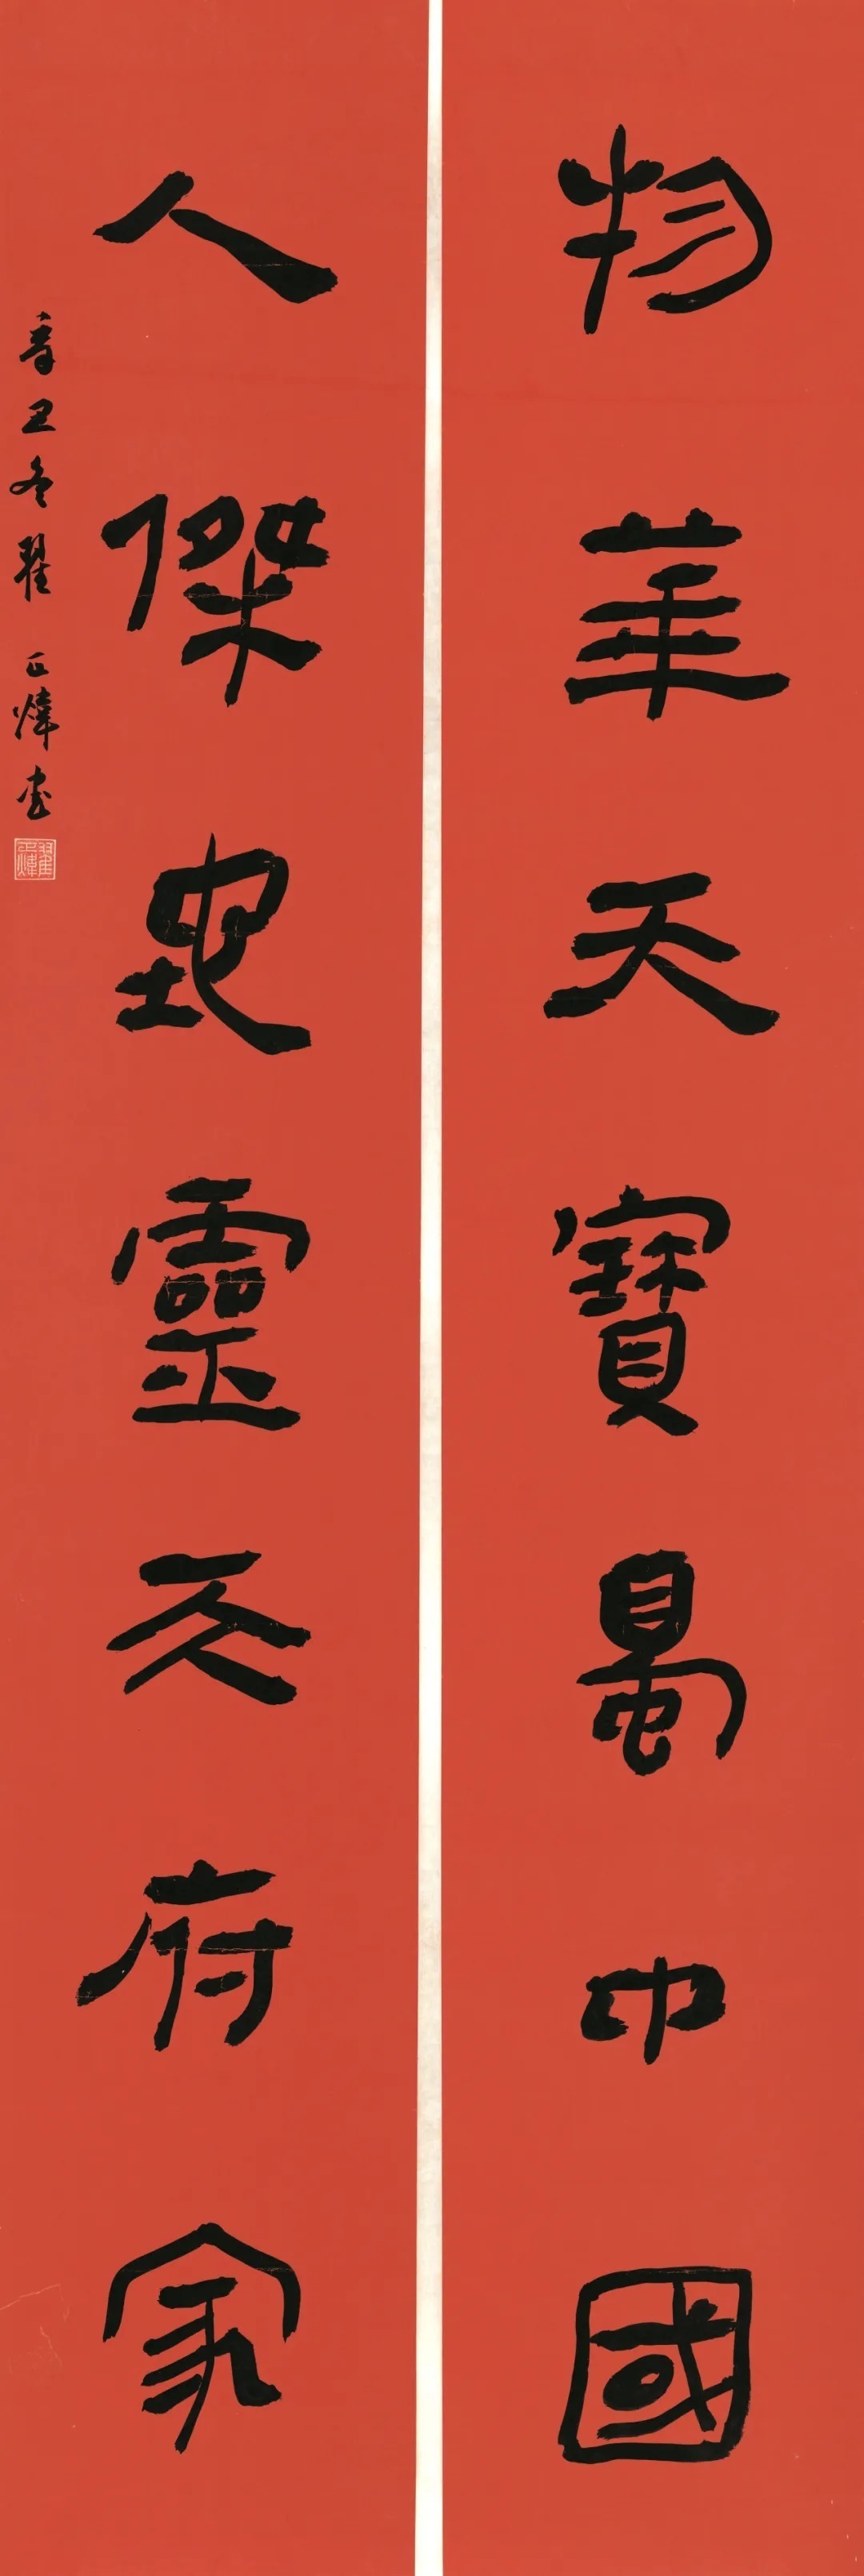 物華天寶蜀中國
人傑地靈天府家
辛丑冬翟正煒書
翟正煒